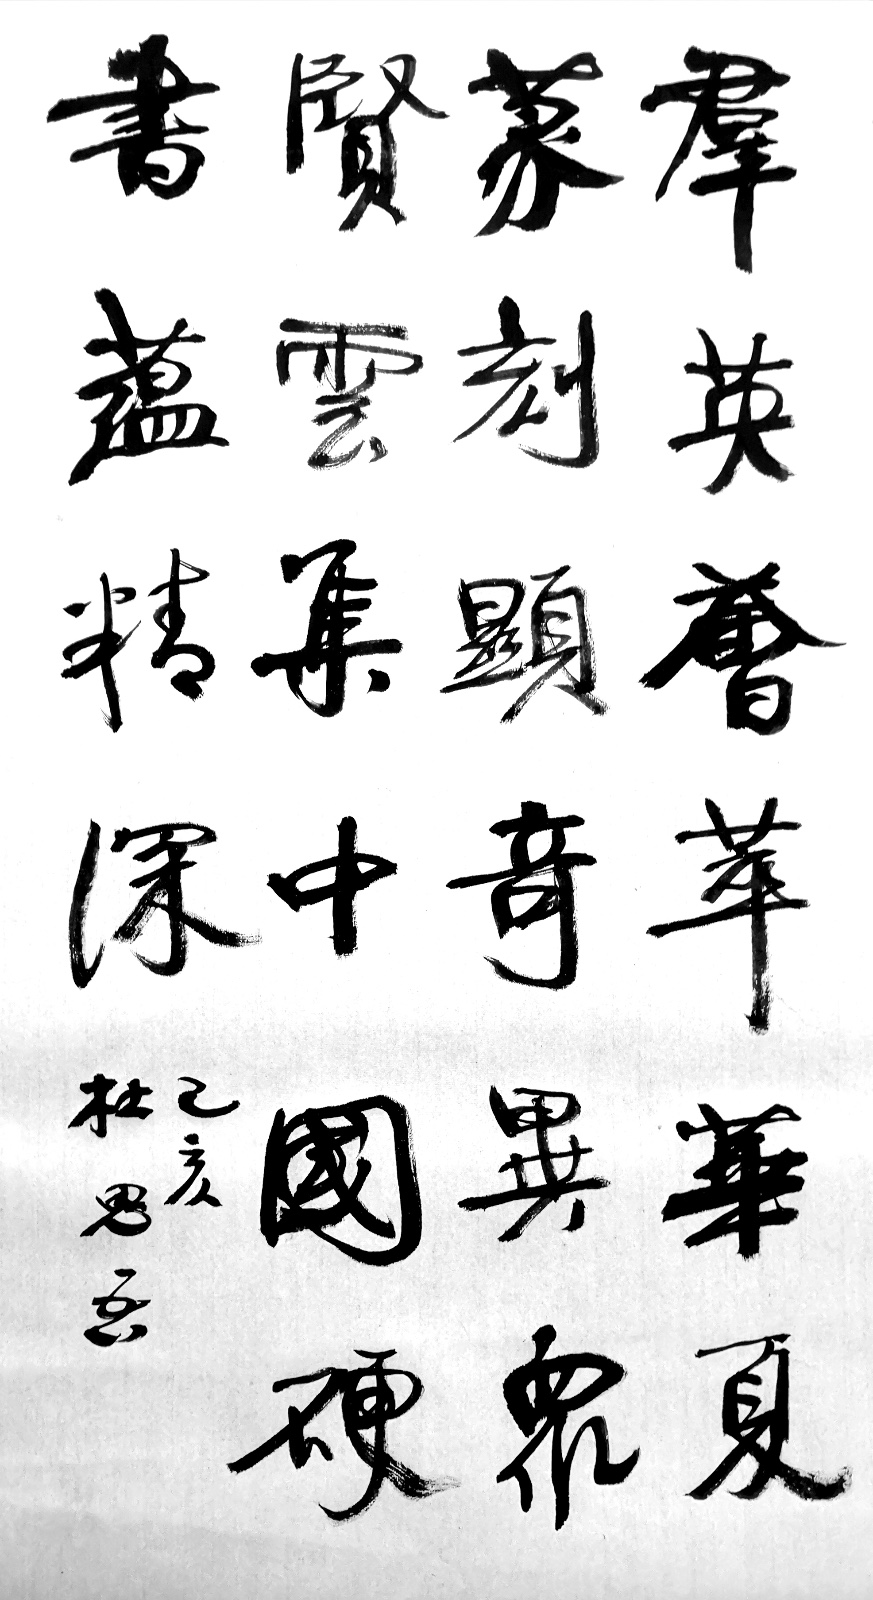 羣英薈萃華夏
篆刻顯奇異眾
賢雲集中國硬
書蘊精深
己亥
杜思吾